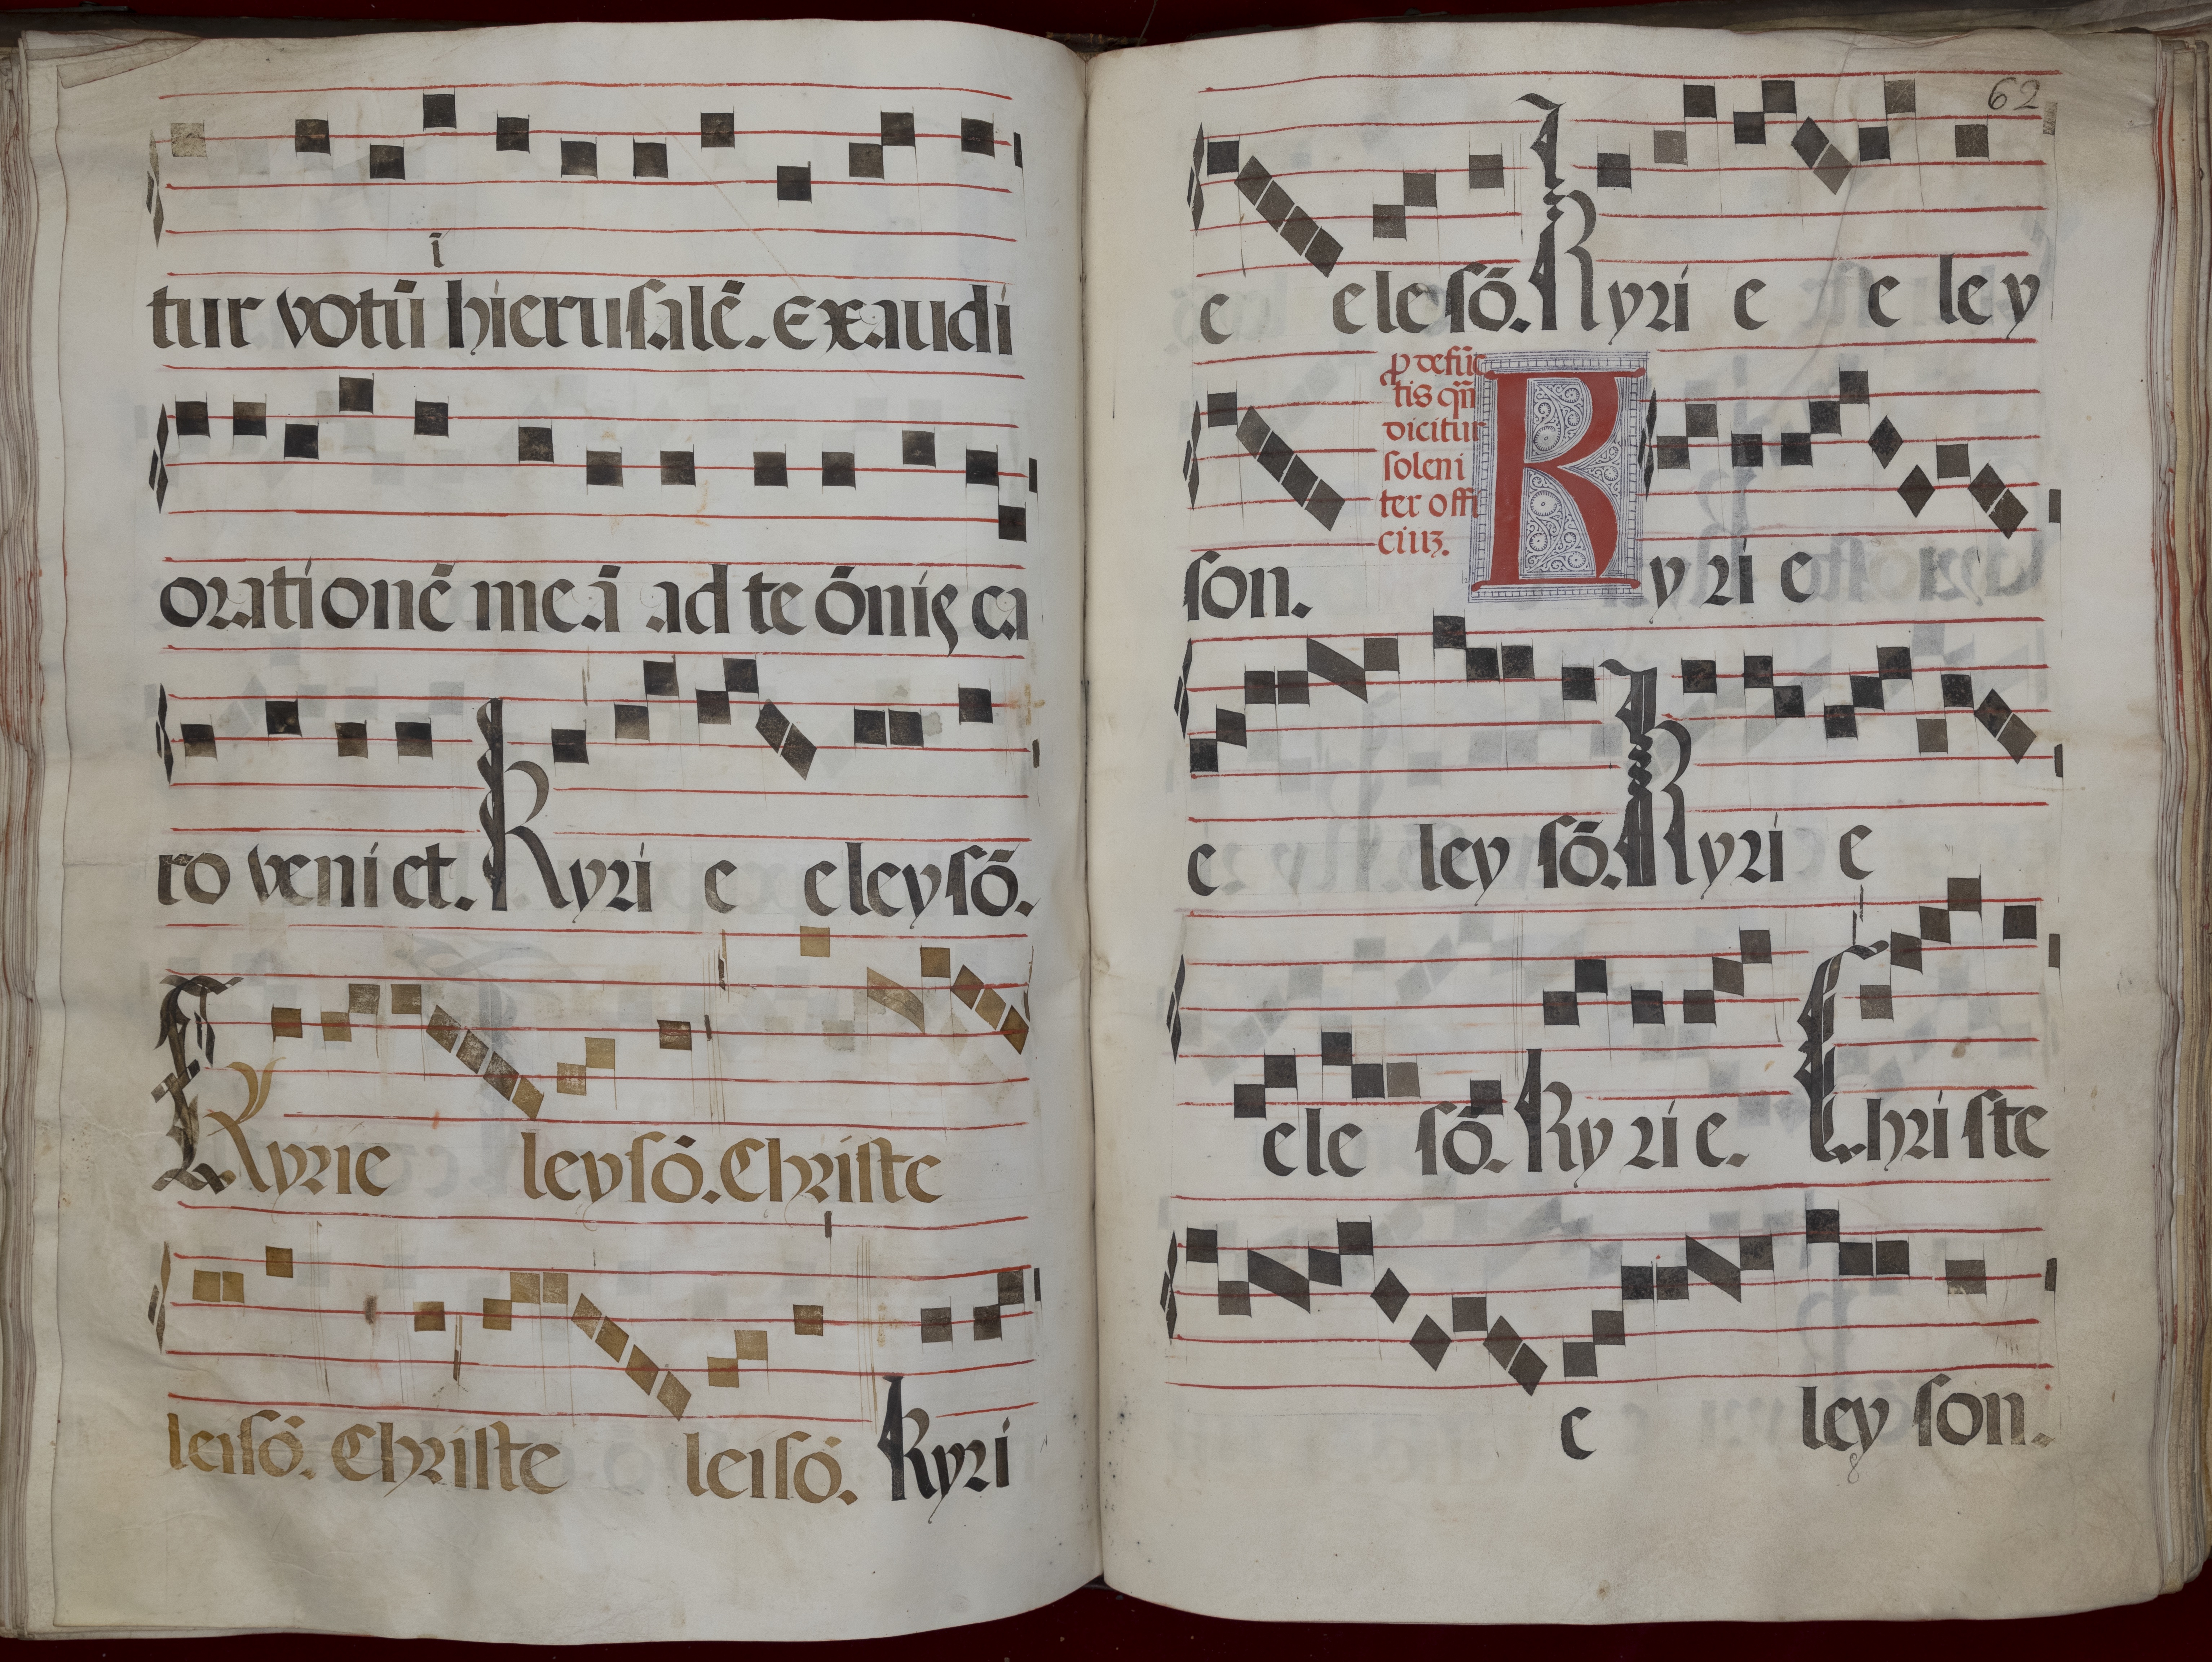 i
tur votū hierusalē. exaudi
orationē meā ad te ōnis ca
ro veniet. Kyri e eleysō.
Kyrie leysō. Christe
leisō. Christe leisō. Kyri
62
e elesō. Kyri e e ley
ꝓ defūc
tis qn̄
dicitur
soleni
ter offi
ciuꝫ.
son. Kyri e
e ley sō. Kyri e
ele sō. Kyrie. Christe
e ley son.